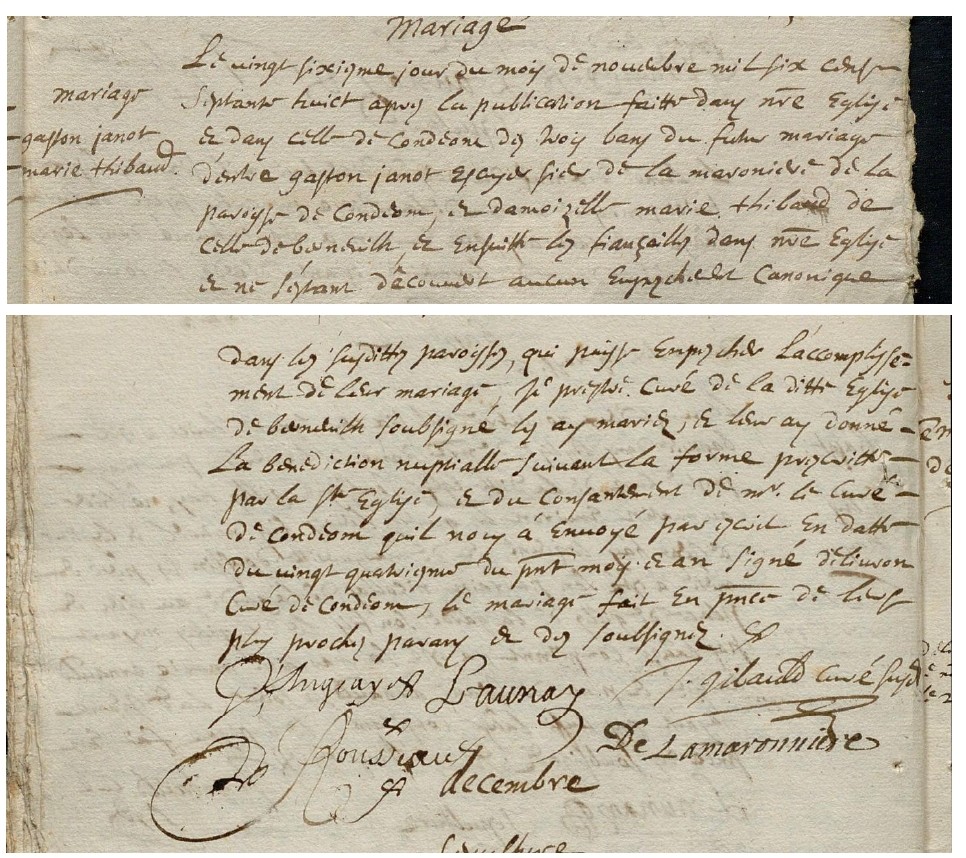 Mariage
Le vingt sixième jour du mois de novembre mil six cens
mariage
septante huict apres la publication faitte dans nre Eglise
gaston janot
et dans celle de Condeom des trois bans du futur mariage
marie thibaud.
d'entre gaston janot Escuyer sier de la maroniere de la
paroisse de Condeom, et damoizelle marie thibaud de
celle de berneuilh, et Ensuitte les fiançailles dans nre Eglise
et ne s'éstant découvert aucun Empeschemt Canonique
dans les susdittes paroisses, qui puisse Enpescher l'accomplisse-
ment de leur mariage, Je prestre Curé de la ditte Eglise
de berneuilh soubsigné les ay mariez, et leur ay donné
La benediction nuptialle suivant la forme prescritte
par la ste Eglise, et du Consantement de mr. le Curé
de Condeom quil nous a Envoyé par escrit En datte
du vingt quatriesme du pnt mois et an signé delivron
Curé de Condeom, le mariage fait En pnce de leurs
plus proches parans et des soubsignez.
Launay
J. gibauld curé susd
Rousseau
De Lamaronniere
decembre
Sepulture